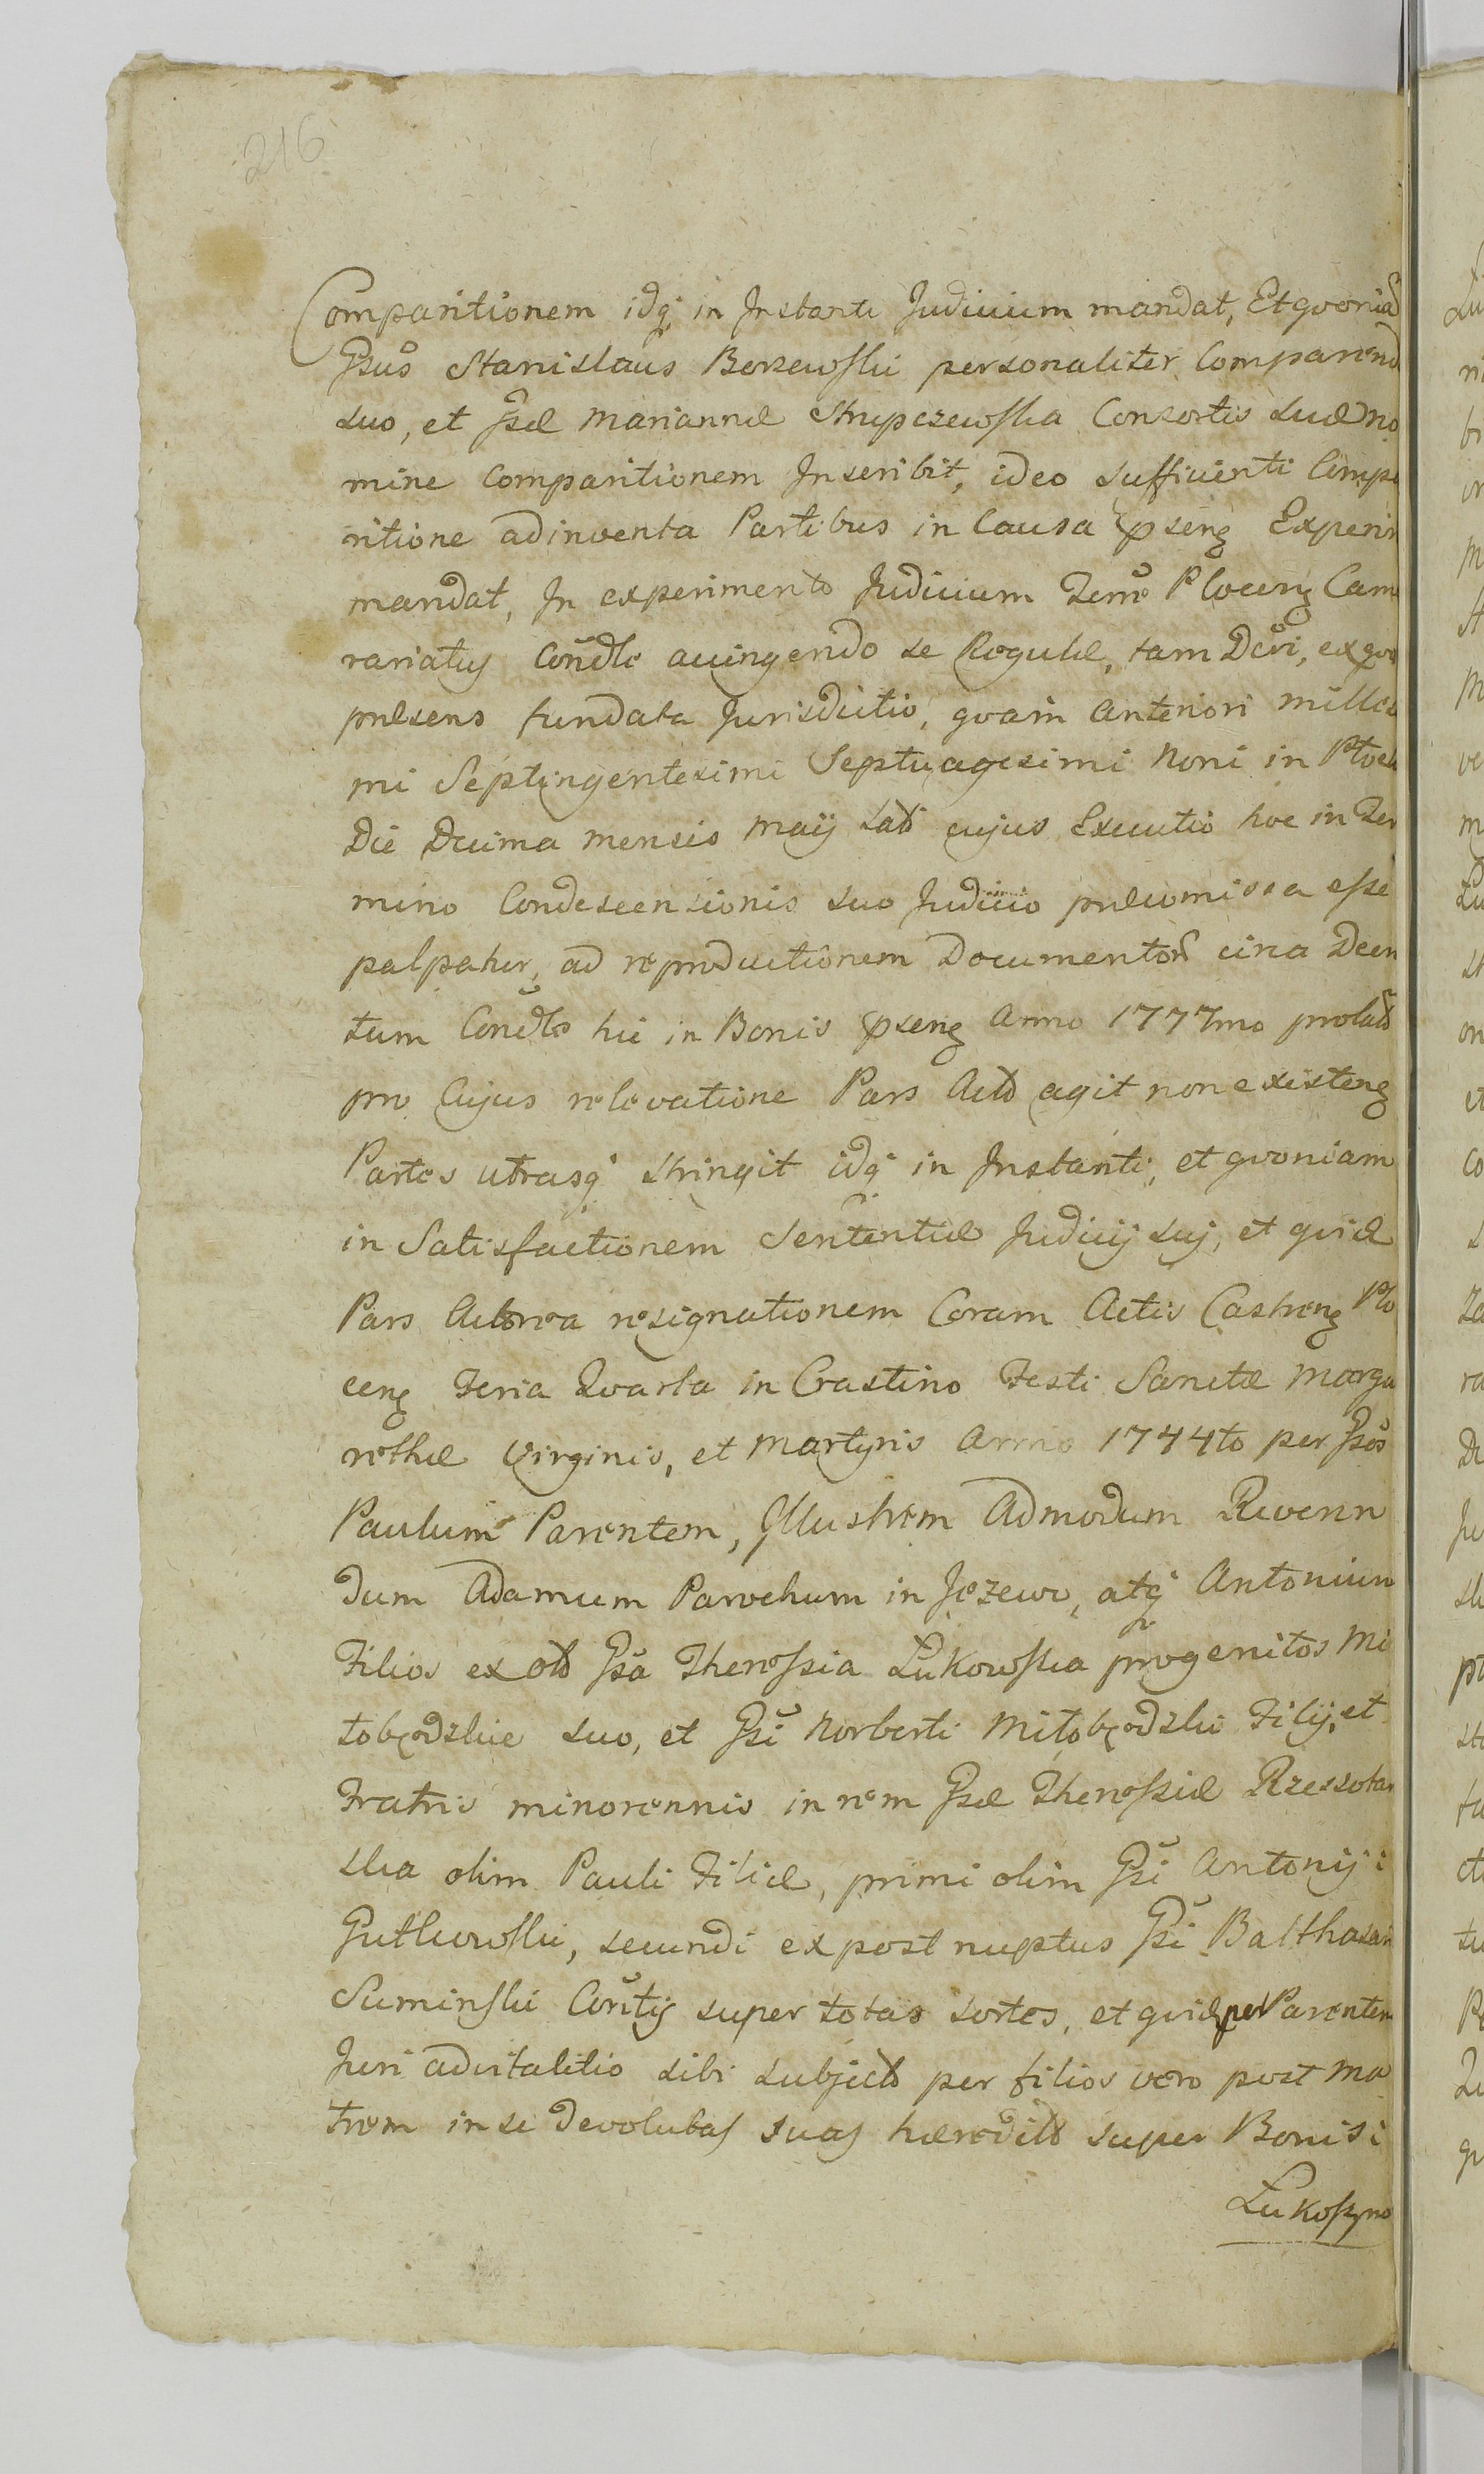 216
Comparitionem idq in Instanti Judicium mandat, Et qvonia
Gsus Stanislaus Borzewski personaliter Comparend
suo, et Gsæ Mariannæ Strupczewska Consortis suæ no
mine Comparitionem Inscribit, ideo sufficienti Compa
ritione adinventa Partibus in Causa pseng Experir
mandat, In experimento Judicium Terre Ploceng Cam
rariatus Condlo accingendo se Regulæ, tam Dcri, ex qvo
præsens fundata Jurisdictio, qvam Anteriori Milles
mi Septingentesimi Septuagesimi Noni in Plock
Die Decima mensis Maij lati cujus Executio hoc in Ter
mino Condescensionis suo Judicio præcomissa esse
palpatur, ad reproductionem Documentor circa Decr
tum Condlo hic in Bonis pseng Anno 1777mo prolat
pro Cujus relevatione Pars Act agit non existeng
Partes utrasq stringit idq in Instanti, et qvoniam
in Satisfactionem Sententiæ Judicij suj, et qvid
Pars Actorea resignationem Coram Actis Castreng Plo
ceng Feria Qvarta in Crastino Festi Sanctæ Marga
rethæ Virginis, et Martyris Anno 1744to per Gsos
Paulum Parentem, Illustrem Admodum Reveren
dum Adamum Parochum in Jezewo, atq Antonium
Filios ex olt Gsa Theressia Łukowska progenitos Mi
łobędzkie suo, et Gsi Norberti Miłobędzki Filij, et
Fratris minorennis in rem Gsæ Theressiæ Rzeszotar
ska olim Pauli Filiæ, primi olim Gsi Antonij
Gutkowski, secundi expost nuptus Gsi Balthasar
Suminski Contis super totas sortes, et qvid per Parentem
Juri advitalitio sibi subject per filios vero post Ma
trem in se devolutas suas hæredit super Bonis
Łukoszyno